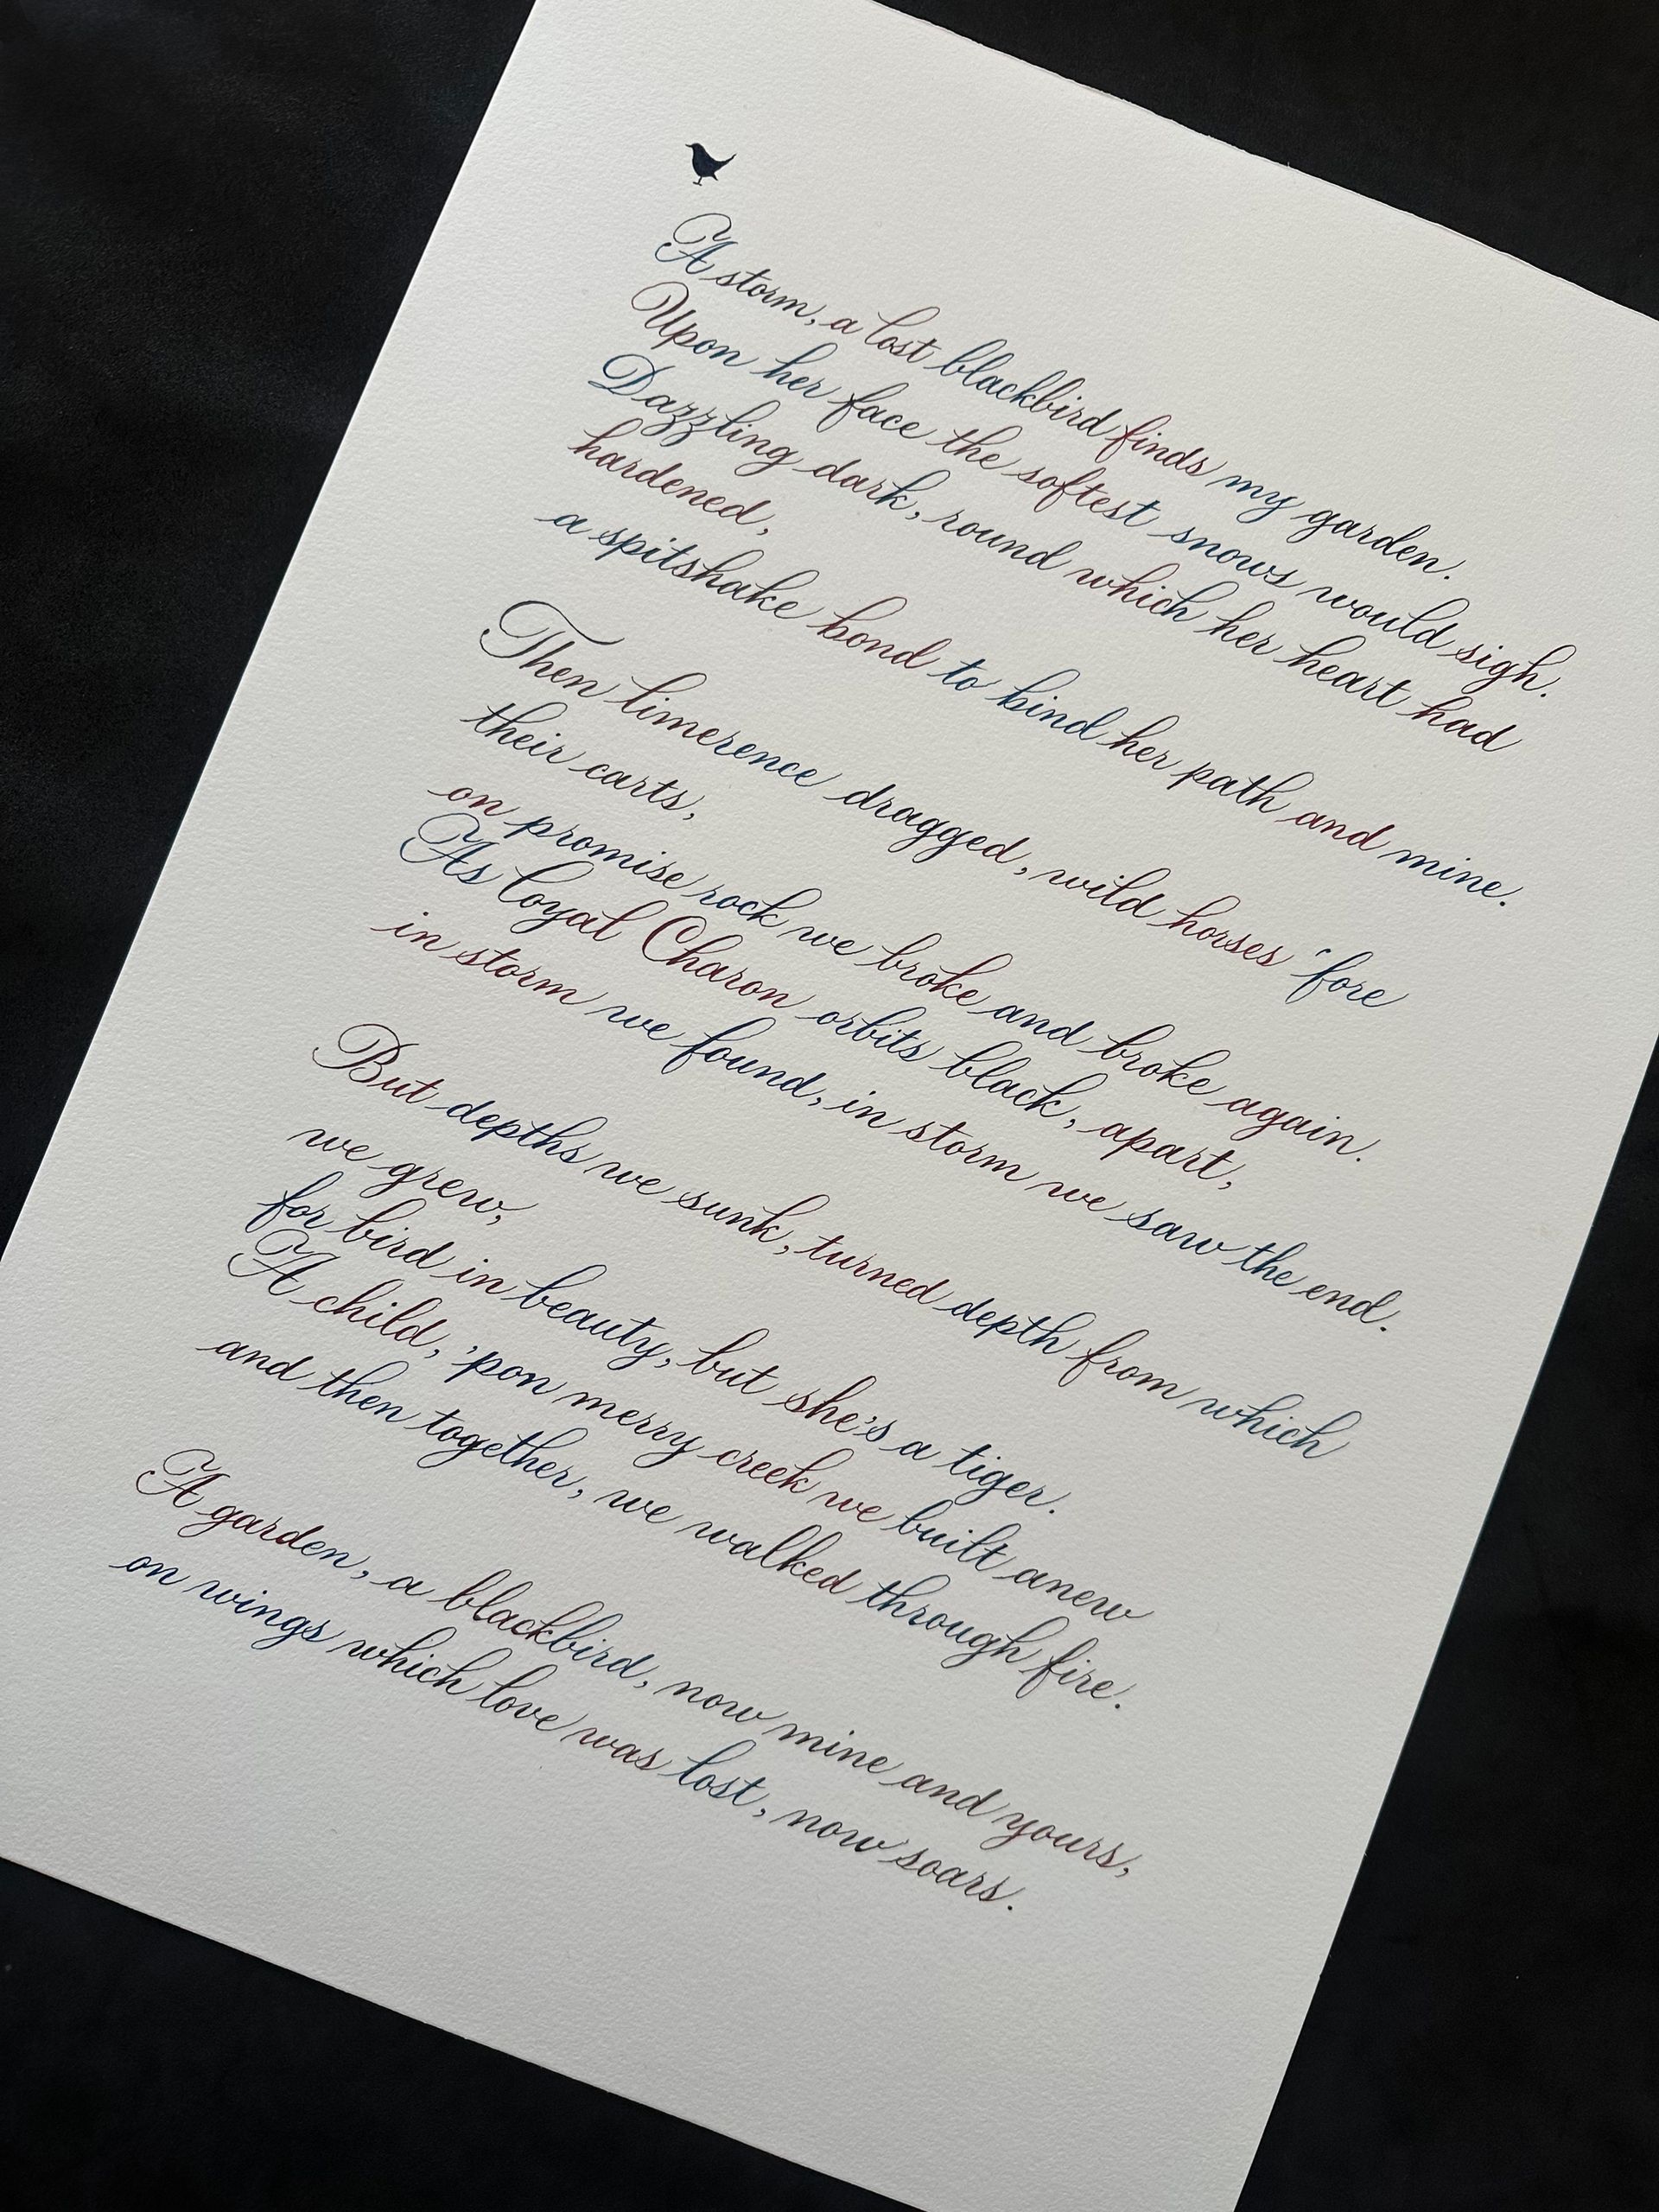 A storm, a lost blackbird finds my garden.
Upon her face the softest snows would sigh.
Dazzling dark, round which her heart had
hardened,
a spitshake bond to bind her path and mine.
Then limerence dragged, wild horses 'fore
their carts,
on promise rock we broke and broke again.
As loyal Charon orbits black, apart,
in storm we found, in storm we saw the end.
But depths we sunk, turned depth from which
we grew,
for bird in beauty, but she's a tiger.
A child, 'pon merry creek we built anew
and then together, we walked through fire.
A garden, a blackbird, now mine and yours,
on wings which love was lost, now soars.